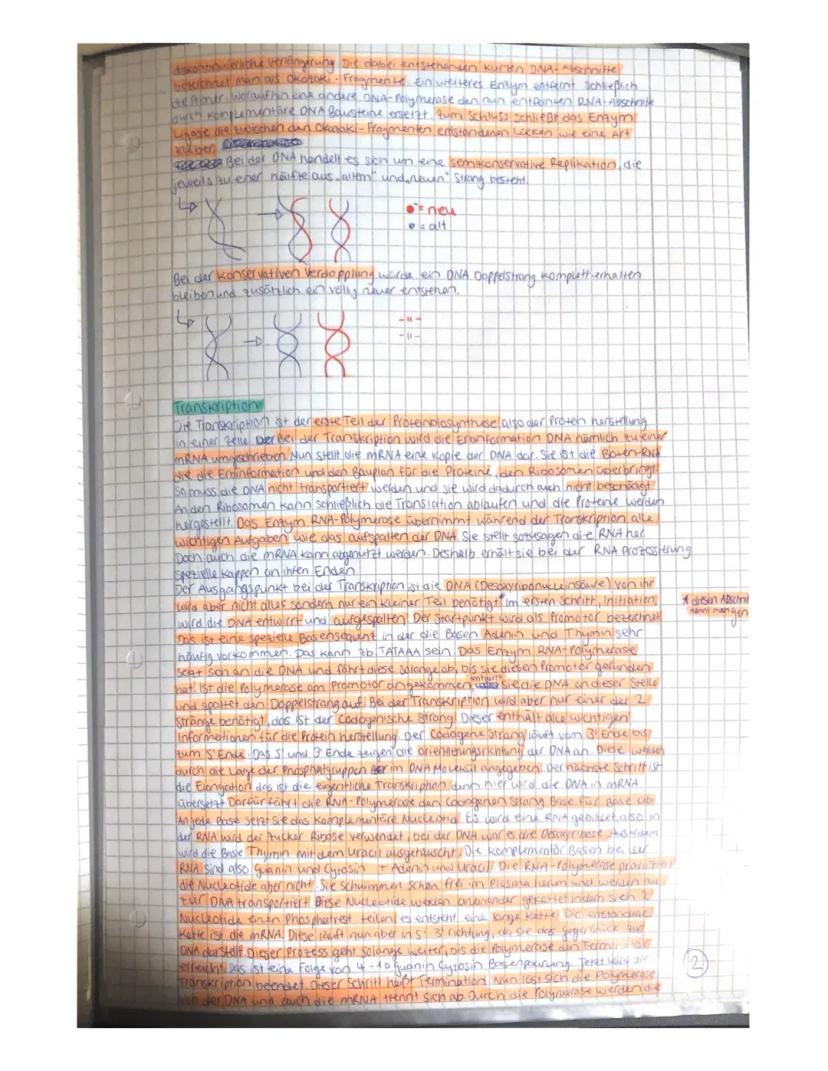 diskontinuierliche Verlängerung. Die dabei entstehenden kurzen DNA-Abschnitte
bezeichnet man als Okazaki-Fragmente. Ein weiteres Enzym entfernt schließlich
die Primer, woraufhin eine andere DNA-Polymerase den nun entfernten RNA-Abschnitt
durch komplementäre DNA Bausteine ersetzt. Zum Schluss schließt das Enzym
Ligase die zwischen den Okazaki-Fragmenten entstandenen Lücken wie eine Art
Kleber.
Bei der DNA handelt es sich um eine semikonservative Replikation, die
jeweils zu einer Hälfte aus „altem" und „neuen" Strang besteht.
= neu
= alt
Bei der konservativen Verdopplung würde ein DNA Doppelstrang komplett erhalten
bleiben und zusätzlich ein völlig neuer entstehen.
-"-
-"-
Transkription
Die Transkription ist der erste Teil der Proteinbiosynthese also der Protein herstellung
in einer Zelle. Bei der Transkription wird die Erbinformation DNA nämlich zu einer
mRNA umgeschrieben. Nun stellt die mRNA eine Kopie der DNA dar. Sie ist die Boten-RNA
die die Erbinformation und den Bauplan für die Proteine, den Ribosomen überbringt.
So muss die DNA nicht transportiert werden und sie wird dadurch auch nicht beschädigt.
An den Ribosomen kann schließlich die Translation ablaufen und die Proteine werden
hergestellt. Das Enzym RNA-Polymerase übernimmt während der Transkription alle
wichtigen Aufgaben wie das aufspalten der DNA. Sie stellt sozusagen die RNA her.
Doch auch die mRNA kann abgenutzt werden. Deshalb erhält sie bei der RNA Prozessierung
spezielle Kappen an ihren Enden.
Der Ausgangspunkt bei der Transkription ist die DNA (Desoxyribonukleinsäure) von ihr
wird aber nicht alles sondern nur ein kleiner Teil benötigt.* Im ersten Schritt, Initiation,
* diesen Abschni
nennt man gen
wird die DNA entwirrt und aufgespalten. Der Startpunkt wird als Promotor bezeichnet
Das ist eine spezielle Basensequenz in der die Basen Adenin und Thymin sehr
häufig vorkommen. Das kann zb TATAAA sein. Das Enzym RNA-Polymerase
setzt sich an die DNA und fährt diese solange ab, bis sie diesen Promotor gefunden
hat. Ist die Polymerase am Promotor angekommen, entwirrt sie die DNA an dieser Stelle
und spaltet den Doppelstrang auf. Bei der Transkription wird aber nur einer der 2
Stränge benötigt, das ist der Codogenische Strang. Dieser enthält alle wichtigen
Informationen für die Protein herstellung. Der Codogene Strang läuft vom 3' Ende bis
zum 5' Ende. Das 5' und 3' Ende zeigen die orientierungsrichtung der DNA an. Diese werden
durch die Lage der Phosphatgruppen im DNA Molekül angegeben. Der nächste Schritt ist
die Elongation das ist die eigentliche Transkription, denn hier wird die DNA in mRNA
übersetzt. Darfür fährt die RNA-Polymerase den Codogenen Strang Base für Base ab.
An jede Base setzt sie das komplementäre Nucleotid. Es wird eine RNA gebildet, also in
der RNA wird der Zucker Ribose verwendet, bei der DNA war es die Desoxyribose. Außerdem
wird die Base Thymin mit dem Uracil ausgetauscht. Die komplementär Basen bei der
RNA sind also Guanin und Cytosin + Adenin und Uracil. Die RNA-Polymerase produziert
die Nucleotide aber nicht. Sie schwimmen schon frei im Plasma herum und werden nur
zur DNA transportiert. Diese Nucleotide werden aneinander gekettet indem sich 2
Nucleotide einen Phosphatrest teilen, es entsteht eine lange Kette. Die entstandene
Kette ist die mRNA. Diese läuft nun aber in 5' 3' richtung, da sie das gegenstück zur
DNA darstellt. Dieser Prozess geht solange weiter, bis die Polymerase den Terminator
erreicht. Das ist eine Folge von 4-10 Guanin Cytosin Basenpaarung. Jetzt wird die
Transkription beendet. Dieser Schritt heißt Termination. Nun löst sich die Polymerase
von der DNA und auch die mRNA trennt sich ab. Durch die Polymerase werden die
2